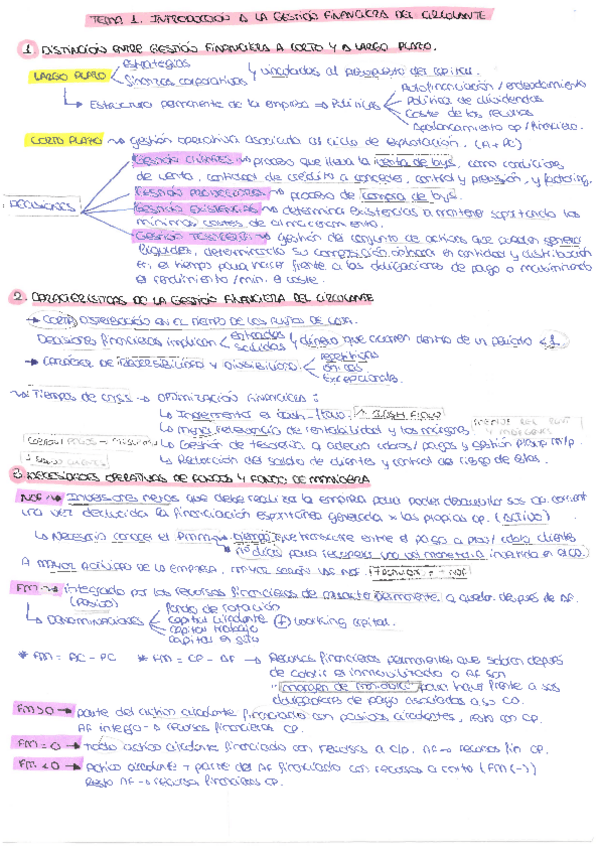 TEMA 1. INTRODUCCIÓN A LA GESTIÓN FINANCIERA DEL CIRCULANTE
1. DISTINCIÓN ENTRE GESTIÓN FINANCIERA A CORTO Y A LARGO PLAZO.
LARGO PLAZO estrategias finanzas corporativas y vinculadas al presupuesto del capital.
↳ Estructura permanente de la empresa → Políticas
Autofinanciación / endeudamiento
Política de dividendos
Coste de los recursos
Apalancamiento op/financiero.
CORTO PLAZO → gestión operativa asociada al ciclo de explotación. (A+PC)
DECISIONES
GESTIÓN CLIENTES → proceso que lleva la venta de bys, como condiciones
de venta, de crédito a conceder, control y previsión, y factoring.
GESTIÓN PROVEEDORES → proceso de compra de bys.
GESTIÓN EXISTENCIAS → determina existencias a mantener soportando los
mínimos costes de almacenamiento.
GESTIÓN TESORERÍA → gestión del conjunto de activos que pueden generar
liquidez, determinando su composición en cantidad y distribución
en el tiempo para hacer frente a las obligaciones de pago maximizando
el rendimiento/min. el coste.
2. CARACTERÍSTICAS DE LA GESTIÓN FINANCIERA DEL CIRCULANTE
→ CORTA DISTRIBUCIÓN EN EL TIEMPO DE LOS FLUJOS DE CAJA.
Decisiones financieras implican entradas salidas y dinero que ocurren dentro de un periodo < 1.
→ CARÁCTER DE REVERSIBILIDAD Y DIVISIBILIDAD
repetitivas
únicas
excepcionales.
→ Tiempos de crisis → OPTIMIZACIÓN FINANCIERA:
↳ Incrementa el cash-flow: ↑ CASH FLOW
↳ menor relevancia de rentabilidad y los márgenes
↳ Gestión de tesorería → adecua cobros/pagos y gestión presup m/p.
↳ Reducción del saldo de clientes y control del riesgo de éstos.
3. NECESIDADES OPERATIVAS DE FONDOS Y FONDO DE MANIOBRA
NOF → Inversiones netas que debe realizar la empresa para poder desarrollar sus op. corrient
una vez deducida la financiación espontánea generada x las propias op. (ACTIVO)
↳ Necesario conocer el PMM → tiempo que transcurre entre el pago a prov/ cobro clientes
nº días para recuperar una ud monetaria invertida en el CO.
A mayor actividad de la empresa, mayor serán las NOF.
FM → integrado por los recursos financieros de carácter permanente a quedar después de AF.
(PASIVO)
↳ DENOMINACIONES
fondo de rotación
capital circulante
capital trabajo
working capital.
* FM = AC - PC * FM = CP - AF → Recursos financieros permanentes que sobran después
de cubrir el inmovilizado o AF son
"margen de maniobra" para hacer frente a sus
obligaciones de pago asociadas a su CO.
FM>0 → parte del activo circulante financiado con pasivos circulantes, resto con CP.
AF íntegro → recursos financieros CP.
FM=0 → todo activo circulante financiado con recursos a c/p. AF → recursos fin CP.
FM<0 → Activo circulante + parte del AF financiado con recursos a corto (FM(-))
Resto AF → recursos financieros CP.